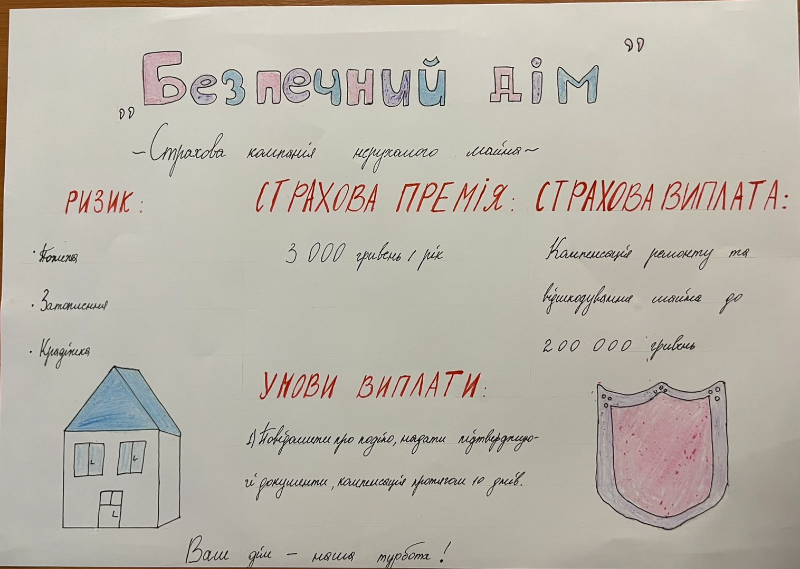 "Безпечний дім"
~Страхова компанія нерухомого майна~
РИЗИК:
· Пожежа
· Затоплення
· Крадіжка
СТРАХОВА ПРЕМІЯ:
3 000 гривень / рік
СТРАХОВА ВИПЛАТА:
Компенсація ремонту та
відшкодування майна до
200 000 гривень
УМОВИ ВИПЛАТИ:
1) Повідомити про подію, надати підтверджую-
чі документи, компенсація протягом 10 днів.
Ваш дім – наша турбота!